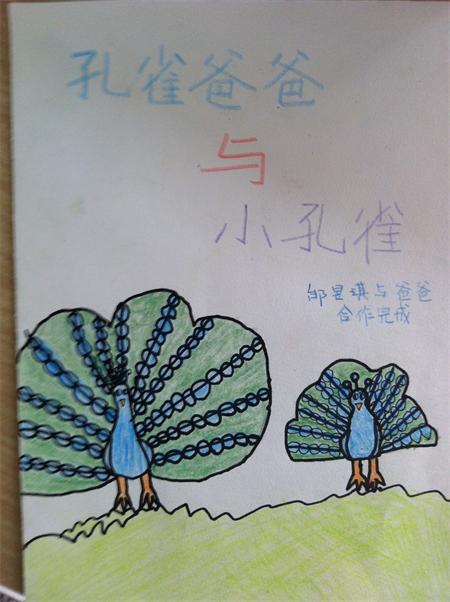 孔雀爸爸
与
小孔雀
邹昱琪与爸爸
合作完成